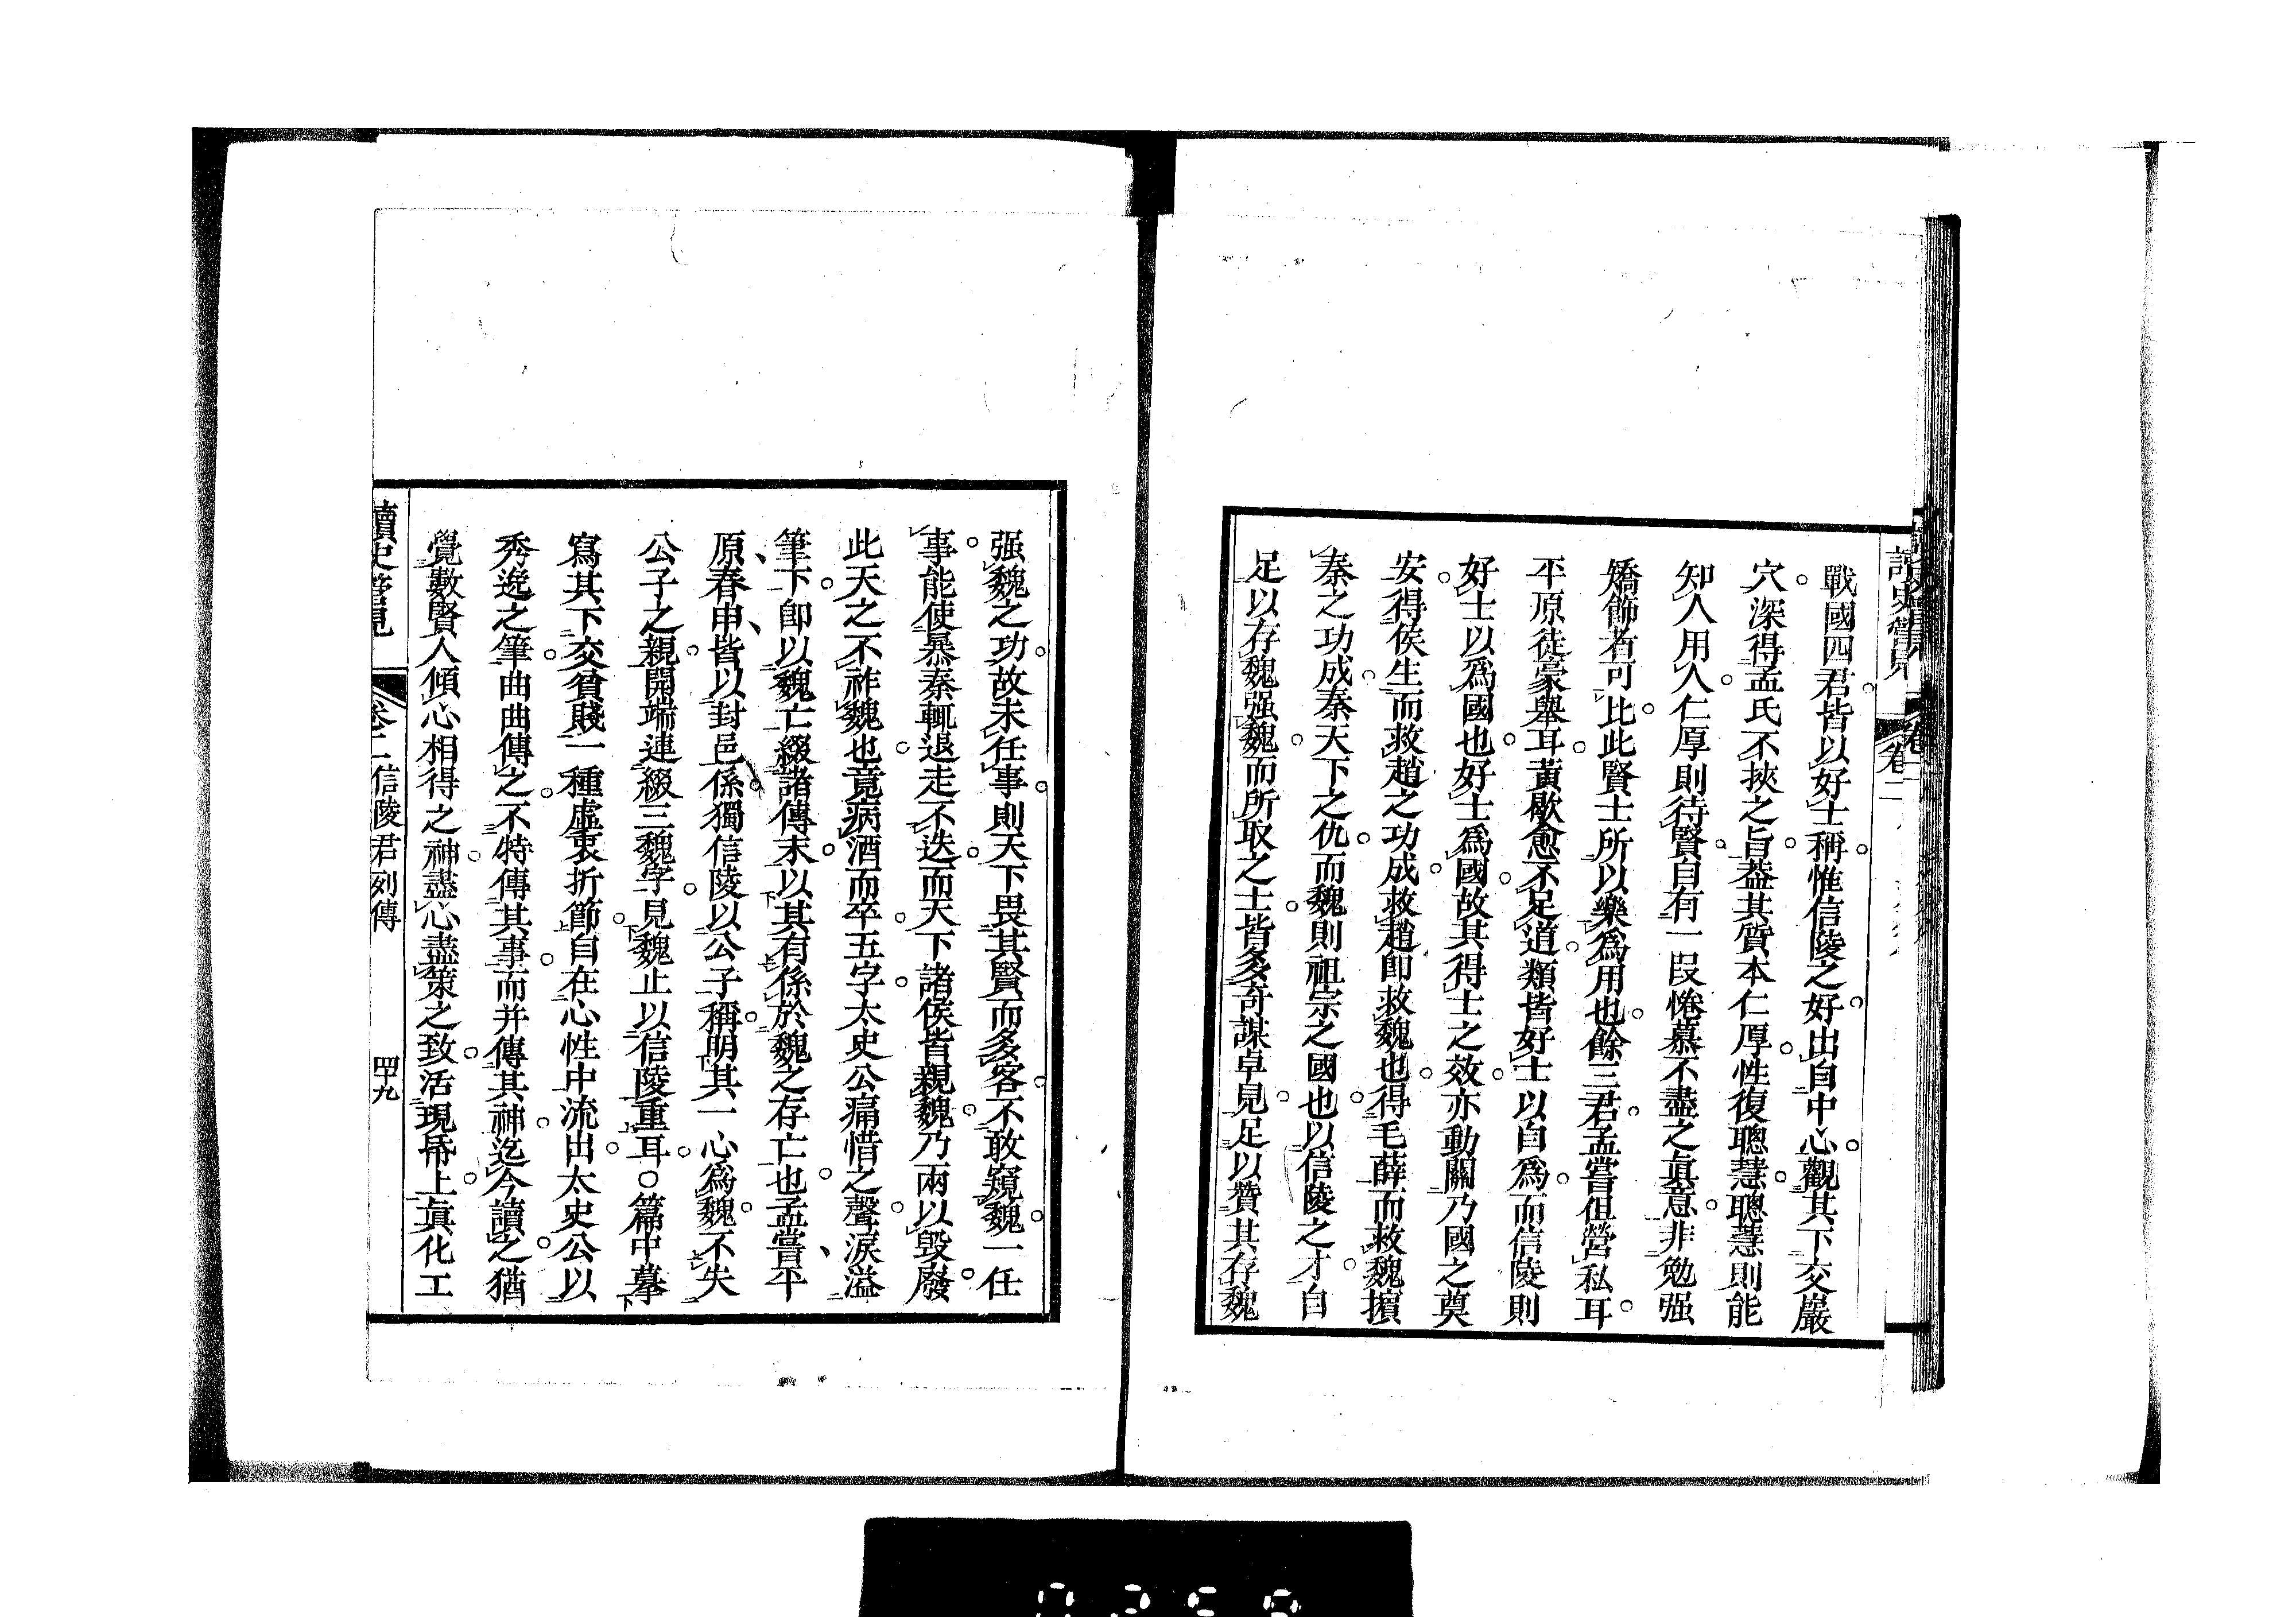 讀史管見
卷二
戰國四君皆以好士稱惟信陵之好出自中心觀其下交巖
穴深得孟氏不挾之旨蓋其質本仁厚性復聰慧聰慧則能
知人用人仁厚則待賢自有一段惓慕不盡之眞意非勉强
矯飾者可比此賢士所以樂爲用也餘三君孟嘗但營私耳
平原徒豪舉耳黃歇愈不足道類皆好士以自爲而信陵則
好士以爲國也好士爲國故其得士之效亦動關乃國之奠
安得侯生而救趙之功成救趙卽救魏也得毛薛而救魏擯
秦之功成秦天下之仇而魏則祖宗之國也以信陵之才自
足以存魏强魏而所取之士皆多奇謀卓見足以贊其存魏
强魏之功故未任事則天下畏其賢而多客不敢窺魏一任
事能使暴秦輒退走不迭而天下諸侯皆親魏乃兩以毀廢
此天之不祚魏也竟病酒而卒五字太史公痛惜之聲淚溢
筆下卽以魏亡綴諸傳末以其有係於魏之存亡也孟嘗平
原春申皆以封邑係獨信陵以公子稱明其一心爲魏不失
公子之親開端連綴三魏字見魏止以信陵重耳○篇中摹
寫其下交貧賤一種虛衷折節自在心性中流出太史公以
秀逸之筆曲曲傳之不特傳其事而并傳其神迄今讀之猶
覺數賢人傾心相得之神盡心盡策之致活現帋上眞化工
讀史管見
卷二
信陵君列傳
四九